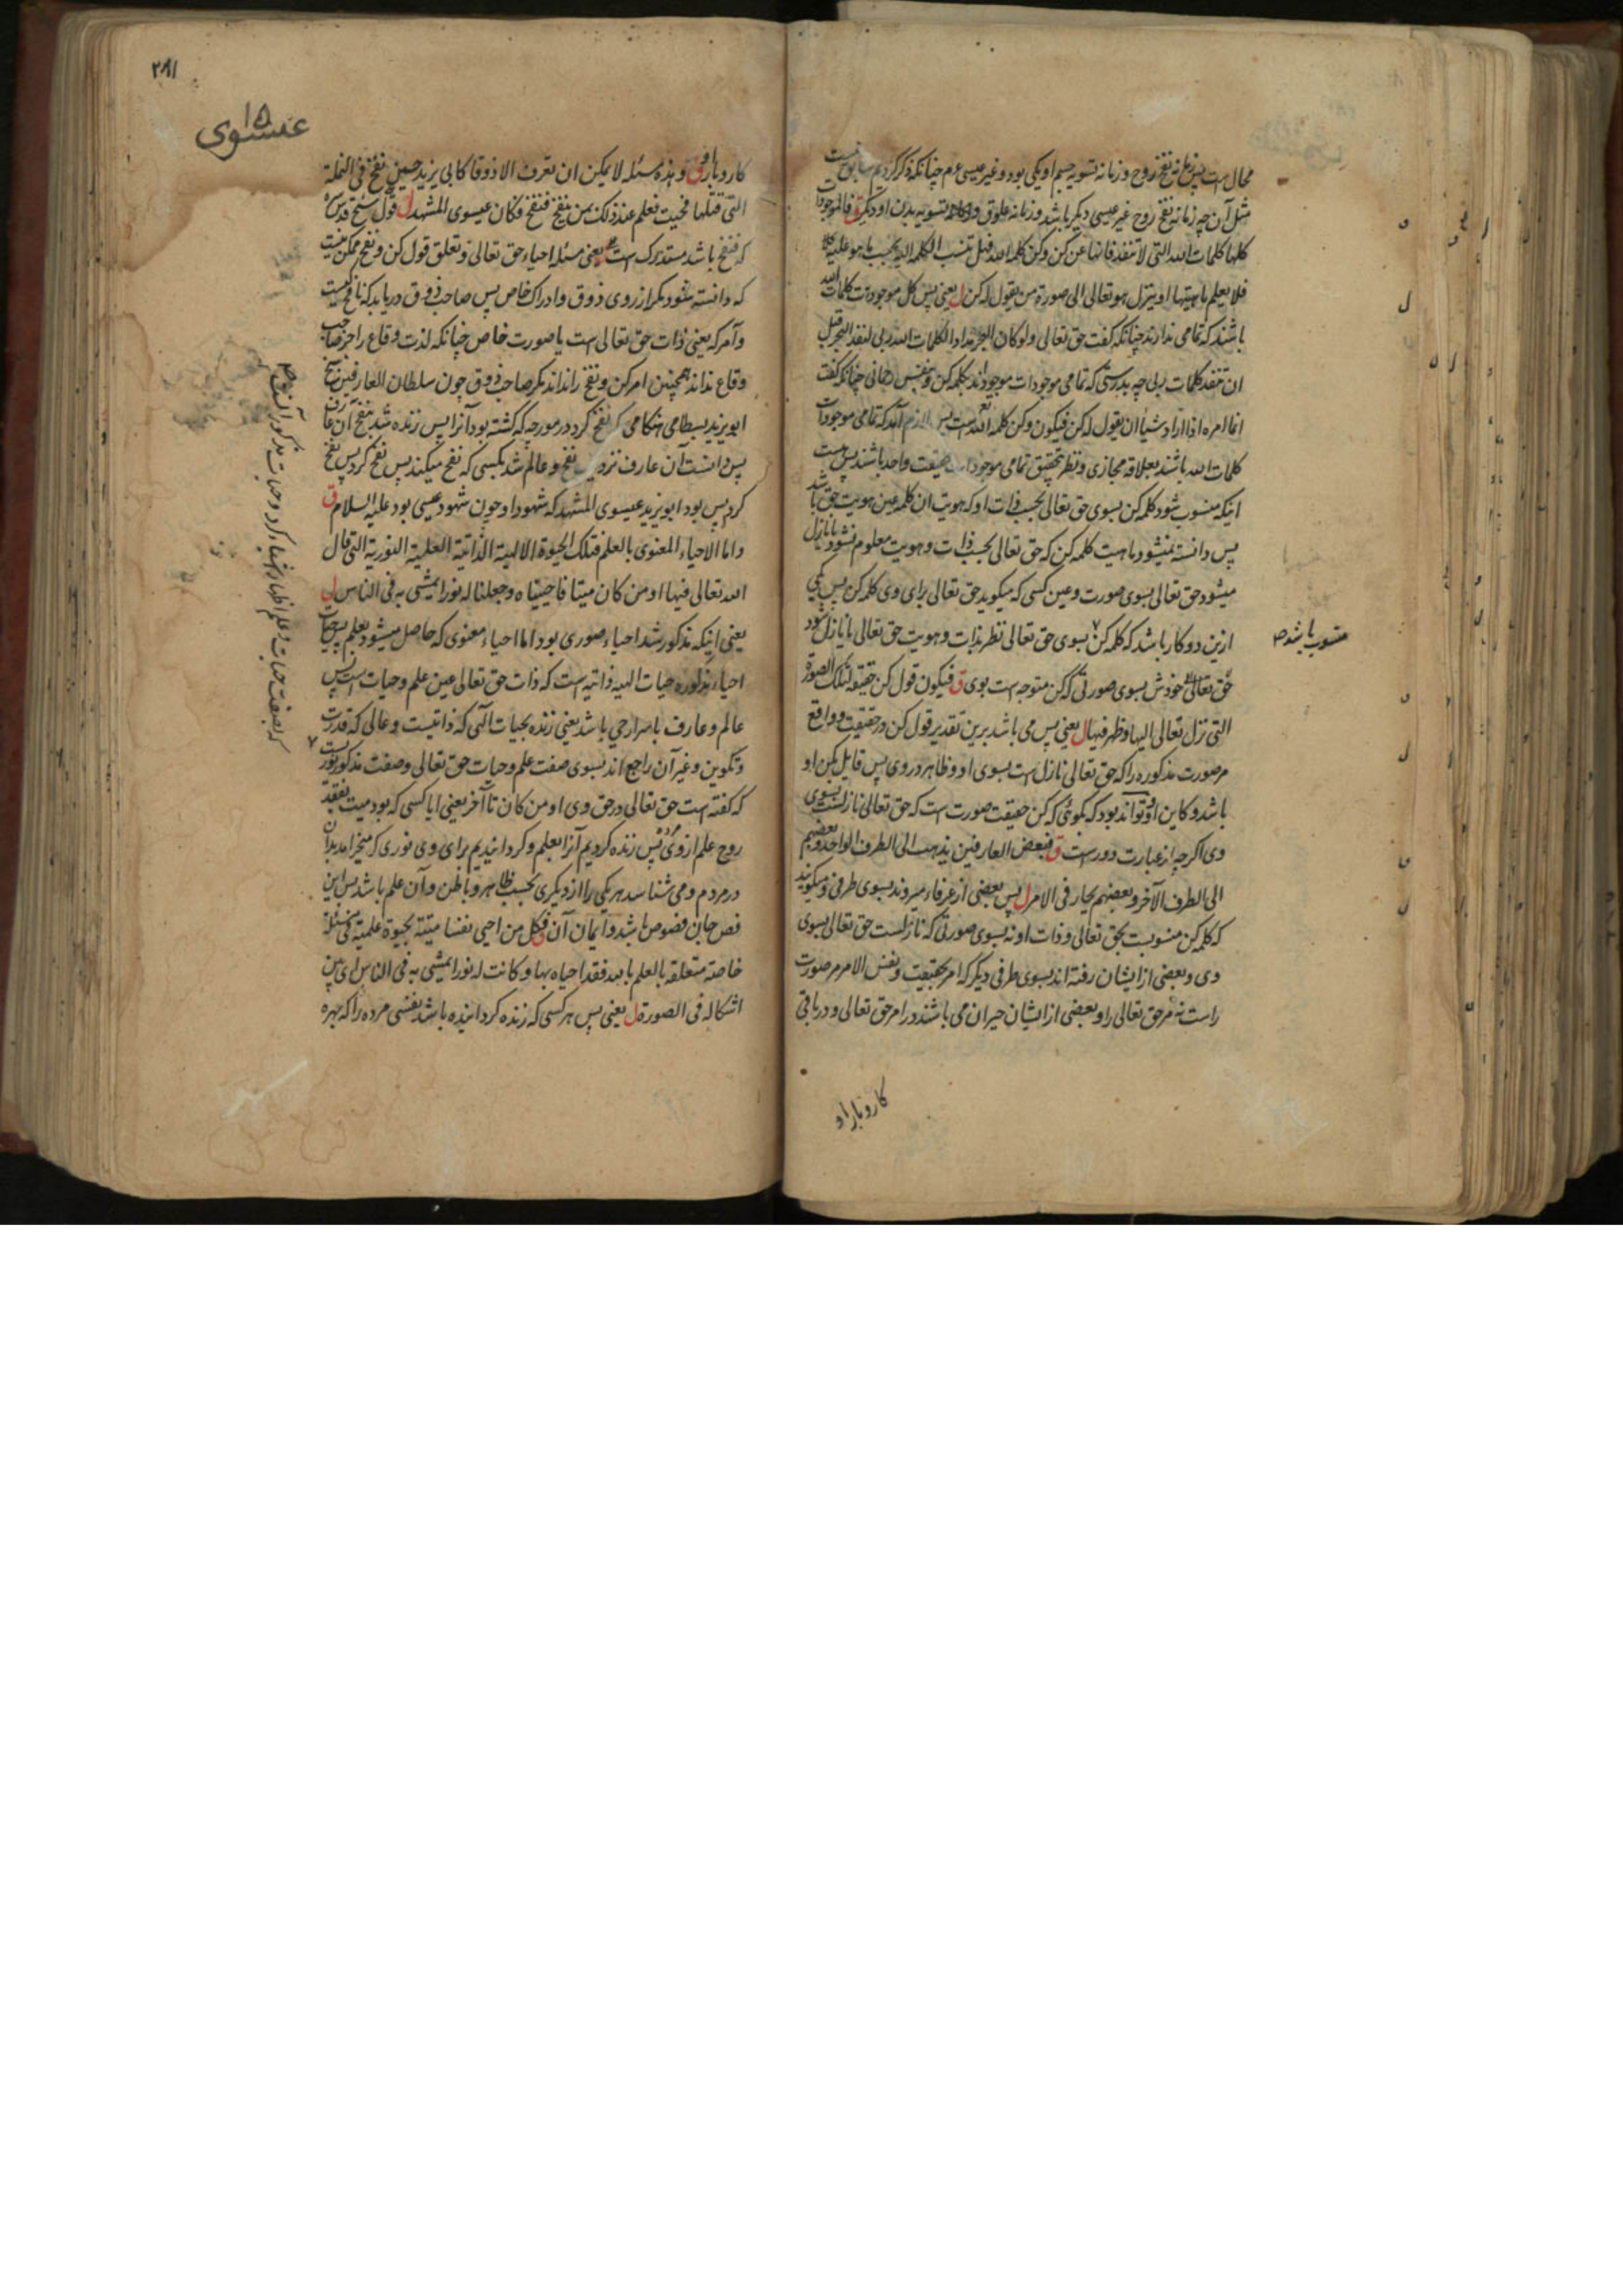 محال است پس زمانهٔ نفخ روح و زمانه تسویه جسم او یکی بود و غیر عیسی عم چنانکه ذکر کردیم سابق نیست
مثل آن چه زمانه نفخ روح غیر عیسی دیگر باشد و زمانه علوق و تسویه بدن او دیگر ق فالموجودات
کلها کلمات الله التی لا تنفد فانها عن کن و کن کلمه الله فهل تنسب الکلمه الیه بحسب ما هو علیه
فلا یعلم ماهیتها او ینزل هو تعالی الی صورة من یقول له کن ل یعنی پس کل موجودات کلمات الله
باشند که تمامی ندارند چنانکه گفت حق تعالی ولو کان البحر مدادا لکلمات ربی لنفد البحر قبل
ان تنفد کلمات ربی چه بدرستی که تمامی موجودات موجود اند بکلمه کن و بنفس رحمانی چنانکه گفت
انما امره اذا اراد شیأ ان یقول له کن فیکون و کن کلمه الله است پس لازم آمد که تمامی موجودات
کلمات الله باشند بعلاقه مجازی و نظر تحقیق تمامی موجودات حقیقت واحد باشند پس
اینکه منسوب شود کلمه کن بسوی حق تعالی بحسب ذات او که هویت ان کلمه عین هویت حق باشد
پس دانسته نمیشود ماهیت کلمه کن که حق تعالی بحسب ذات و هویت معلوم نشود یا نازل
میشود حق تعالی بسوی صورت و عین کسی که میگوید حق تعالی برای وی کلمه کن پس یکی
ازین دو کار باشد که کلمه کن بسوی حق تعالی نظر بذات و هویت حق تعالی یا نازل شود
منسوب باشد صح
حق تعالی خودش بسوی صورتی که کن متوجه است بوی ق فیکون قول کن حقیقه لتلک الصورة
التی نزل تعالی الیها و ظهر فیها ل یعنی پس می باشد برین تقدیر قول کن در حقیقت و واقع
مر صورت مذکوره را که حق تعالی نازل است بسوی او و ظاهر در وی پس قایل بکن او
باشد و کاین او و تواند بود که بگوئی که کن حقیقت صورت است که حق تعالی نازلست بسوی
وی اگرچه از عبارت دور است ق فبعض العارفین یذهب الی الطرف الواحد و بعضهم
الی الطرف الآخر و بعضهم یحار فی الامر ل پس بعضی از عرفاء میروند بسوی طرفی و میگویند
که کلمه کن منسوبست بحق تعالی و ذات او نه بسوی صورتی که نازلست حق تعالی بسوی
وی و بعضی از ایشان رفته اند بسوی طرفی دیگر که امر بحقیقت و نفس الامر مر صورت
راست نه مر حق تعالی را و بعضی از ایشان حیران می باشند در امر حق تعالی و دریافتی
کاروبار او
۲۸۱
عیسوی
۱۵
کاروبار او ق و هذه مسئله لا یمکن ان تعرف الا ذوقا کابی یزید حین نفخ فی النملة
التی قتلها فحییت فعلم عند ذلک بمن ینفخ فنفخ فکان عیسوی المشهد ل قول شیخ قدس سره
که فنفخ باشد مستدرک است یعنی مسئله احیاء حق تعالی و تعلق قول کن و نفخ ممکن نیست
که دانسته شود مگر از روی ذوق و ادراک خاص پس صاحب ذوق دریابد که نافخ کیست
و آمر که یعنی ذات حق تعالی است یا صورت خاص چنانکه لذت وقاع را جز صاحب
وقاع نداند همچنین امر کن و نفخ را نداند مگر صاحب ذوق چون سلطان العارفین شیخ
ابو یزید بسطامی هنگامی که نفخ کرد در مورچه که کشته بود آنرا پس زنده شد بنفخ آن عارف
پس دانست آن عارف نزدیک نفخ و عالم شد بکسی که نفخ میکند پس نفخ کرد پس نفخ
کرد پس بود ابو یزید عیسوی المشهد که شهود او چون شهود عیسی بود علیه السلام ق
و اما الاحیاء المعنوی بالعلم فتلک الحیوة الالهیة الذاتیة العلمیة النوریة التی قال
الله تعالی فیها او من کان میتا فاحییناه و جعلنا له نورا یمشی به فی الناس ل
یعنی اینکه مذکور شد احیاء صوری بود اما احیاء معنوی که حاصل میشود بعلم پس حیات
احیاء مذکوره حیات الهیه ذاتیه است که ذات حق تعالی عین علم و حیات است پس
عالم و عارف باسرار حی باشد یعنی زنده بحیات الهی که ذاتیست و عالی که قدرت
و تکوین و غیر آن راجع اند بسوی صفت علم و حیات حق تعالی و صفت مذکور نوریست
که گفته است حق تعالی در حق وی او من کان تا آخر یعنی ایا کسی که بود میت بفقد
روح علم از وی پس زنده کردیم آنرا بعلم و گردانیدیم برای وی نوری که میخرامد بدان
در مردم و می شناسد هر یکی را از دیگری بحسب ظاهر و باطن و آن علم باشد پس این
فص جان فصوص باشد و ایمان آن ق فکل من احیی نفسا میتة بحیوة علمیة فی مسئلة
خاصة متعلقة بالعلم بالله فقد احیاه بها و کانت له نورا یمشی به فی الناس ای بین
اشکاله فی الصورة ل یعنی پس هر کسی که زنده گردانیده باشد نفسی مرده را که بهره